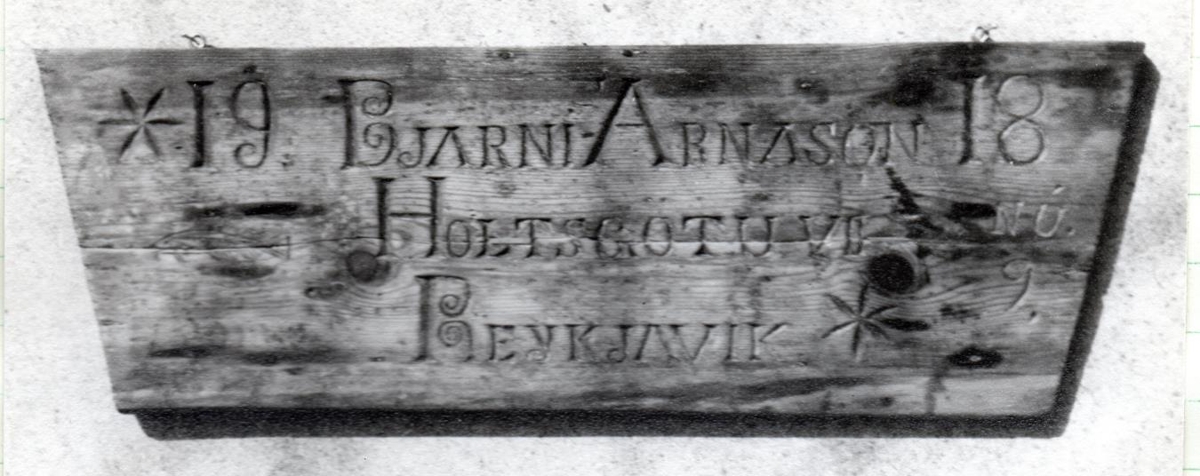 * 19. BJARNI-ARNASON 18
HOLTSGOTU VII NÚ.
REYKJAVIK * 9.